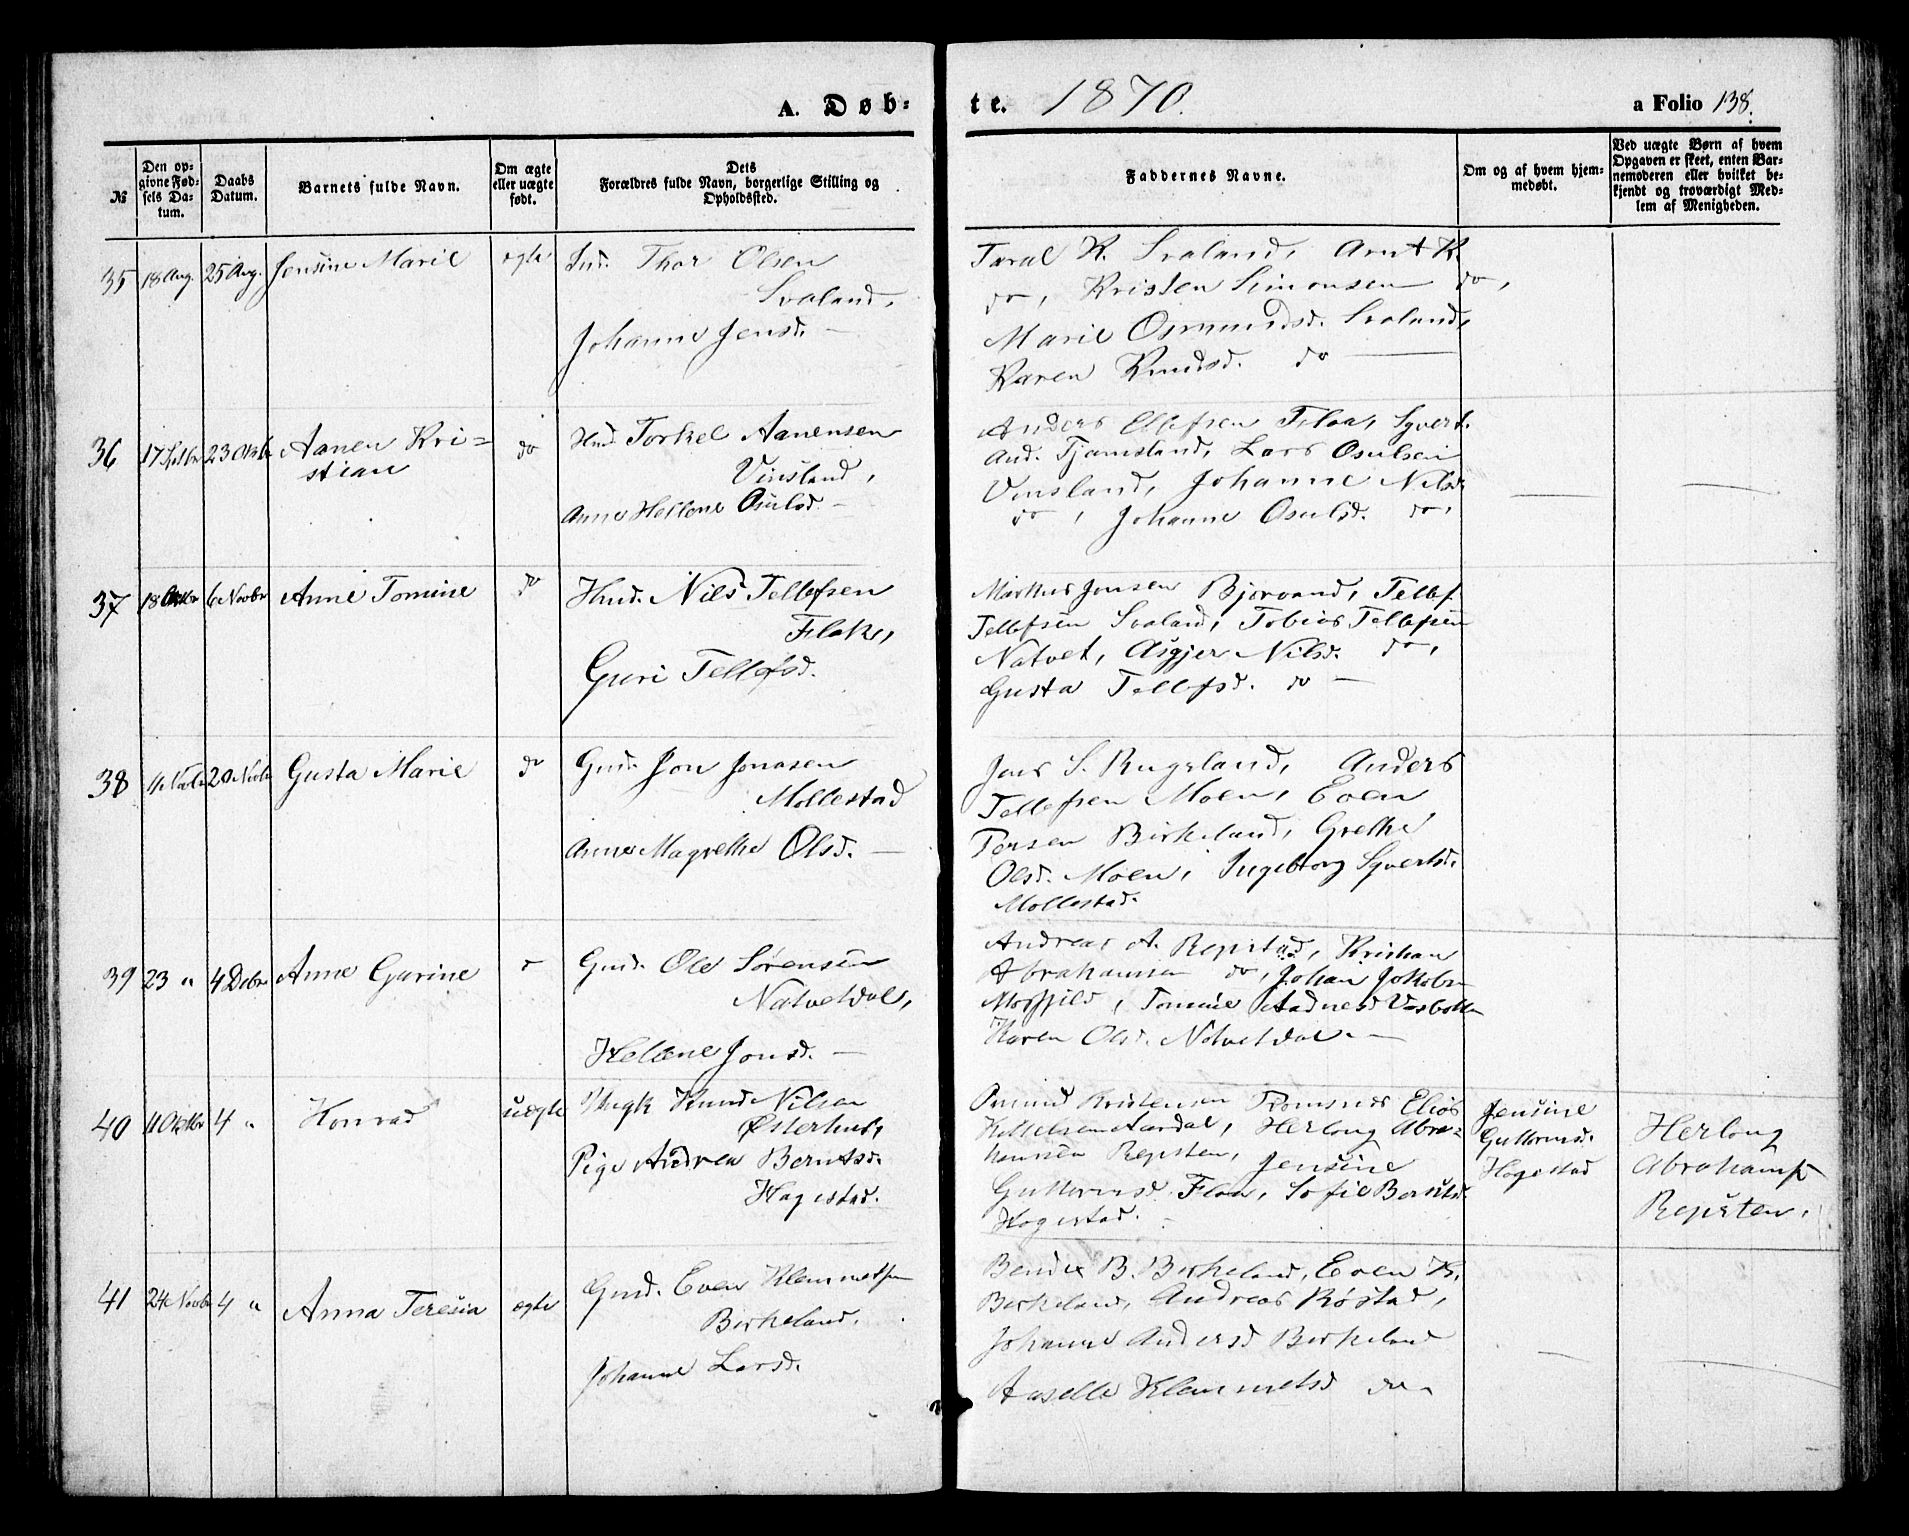 A. Døb-
te. 1870.
a Folio 138.
№
Den op-
givne Fød-
sels Da-
tum.
Daabs
Datum.
Barnets fulde Navn.
Om ægte
eller uægte
født.
Dets
Forældres fulde Navn, borgerlige Stilling og
Opholdssted.
Faddernes Navne.
Om og af hvem hjem-
medøbt.
Ved uægte Børn af hvem
Opgaven er skeet, enten Bar-
nemoderen eller hvilket be-
kjendt og troværdigt Med-
lem af Menigheden.
35 18 Aug. 25 Aug. Jensine Marie ægte Ind. Thor Olsen
Svaland,
Johanne Jensd. —
Taral K. Svaland, Arnt K.
do, Kristen Simonsen do,
Marie Osmundsd. Svaland,
Karen Knudsd. do —
36 17 Septbr 23 Oktbr Aanen Kri=
stian
do Hmd. Torkel Aanensen
Vinsland,
Anne Hellene Osulsd. —
Anders Ellefsen Flaa, Syvert
And. Tjamsland, Lars Osulsen
Vinsland, Johanne Nilsd.
do, Johanne Osulsd. do,
37 18 Oktbr 6 Novbr Anne Tomine do Hmd. Nils Tellefsen
Flake,
Guri Tellefsd.
Markus Jensen Bjorvand, Tellef
Tellefsen Svaland, Tobias Tellefsen
Natvet, Asgjer Nilsd. do,
Gusta Tellefsd. do —
38 11 Novbr 20 Novbr Gusta Marie do Gmd. Jon Jonasen
Mollestad
Anne Magrethe Olsd. —
Jens S. Rugsland, Anders
Tellefsen Moen, Even
Persen Birkeland, Grethe
Olsd. Moen, Ingeborg Syvertsd.
Mollestad.
39 23 " 4 Debr Anne Gurine Gmd. Ole Sørensen
Natvetdal,
Helene Jonsd. —
Andreas A. Repstad, Kristian
Abrahamsen do, Johan Jakobsn
Mosfjeld, Tomine Aadnesd Vasbotten
Karen Olsd. Natvetdal. —
40 11 Oktbr 4 " Konrad uægte Ungk Knud Nilsen
Østerhus,
Pige Andrea Berntsd.
Hagestad.
Osmund Kristensen Tromsnes Elias
Kittelsen Aardal, Herlong Abra=
hamsen Repsten, Jensine
Guttormsd. Flaa, Sofie Berntsd.
Hagestad.
Jensine
Guttormsd.
Hagestad
Herlong
Abrahams.
Repsten,
41 24 Novbr 4 " Anna Teresia ægte Gmd. Even Klemmetsen
Birkeland.
Johanne Larsd.
Bendix B. Birkeland, Even K.
Birkeland, Andreas Røstad,
Johanne Andersd Birkeland
Aaselle Klemmetsd do